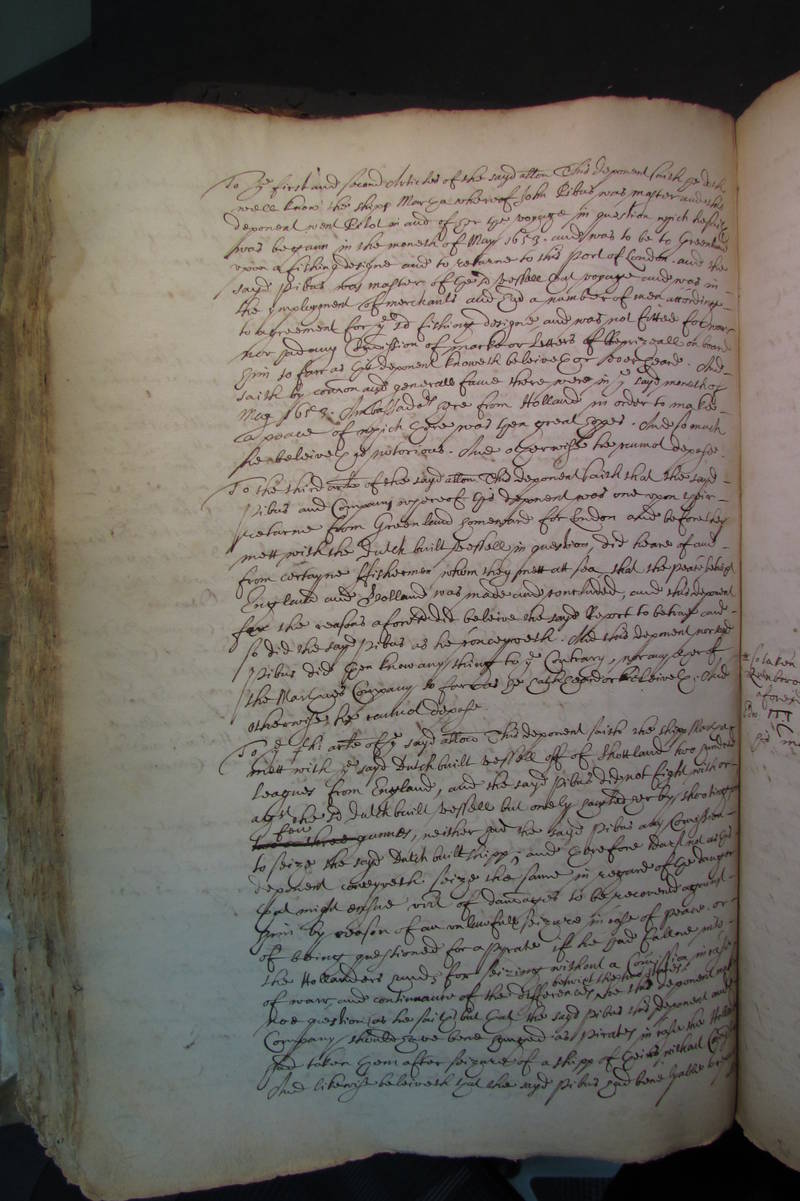 To ye first and second Articles of the sayd allon This deponent saith he doth
well know the shipp Marcaza whereof John Pibus was master and this
deponent went Pilot in and of her the voyage in question which hee saith
was begunn in the moneth of May 1653. and was to be to Greenland
upon a fishing designe and to returne to this Port of London. and the
sayd Pibus was master of the sd vessell that voyage and was in
the imployment of merchants and had a number of men according
to agreement for ye sd fishing designe and was not fitted for warr
nor had any Comission of marke or Letters of Reprizall on board
him so farr as this deponent knoweth beleiveth or ever heard. And
saith by common and generall fame there were in ye sayd moneth of
May 1653. Ambassadors here from Holland in order to make
a peace of which there was then great hopes. And so much
he beleiveth is notorious. And otherwise he cannot depose.
To the third arle of the sayd allon This deponent saith that the sayd
Pibus and Company whereof this deponent was one upon their
returne from Greenland homeward for London and before they
mett with the Dutch built vessell in question, did heare of and
from certayne ffishermen whom they mett att sea that the peace betwixt
England and Holland was made and concluded, and this deponent
for the reasons aforesd did beleive the sayd Report to be true and
so did the sayd Pibus as he conceyveth. And this deponent nor the sd
Pibus did then know any thing to ye Contrary, nor any other of
the Company so farr as he hath heard or beleiveth. And
otherwise he cannot depose.
To ye 4th: arle of ye sayd allon This deponent saith the shipp
mett with ye sayd Dutch built vessell off of Shottland two hundred
leagues from England, and the sayd Pibus did not fight with or
agt the sd Dutch built vessell but onely saluted her by shooting
few gunnes, neither had the sayd Pibus any Comission
to seize the sayd Dutch built shipp, and therefore durst not as this
deponent conceyveth seize the same in regard of the danger
that might ensue vizt of damages to be recovered against
him by reason of an unlawfull seizure in case of peace. or
of being questioned for a pyrate if he had fallne into
the Hollanders hands for seizing without a Comission in case
of warr and continuance of the differences betwixt the two states, for this deponent maketh
noe question (as he saith) but that the sayd Pibus this deponent and
Company should have bene hanged as Pirates in case the Hollanders
had taken them after seizure of a shipp of theirs without Comission
And likewise beleiveth that the sayd Pibus had bene lyable
so taken
aforesd